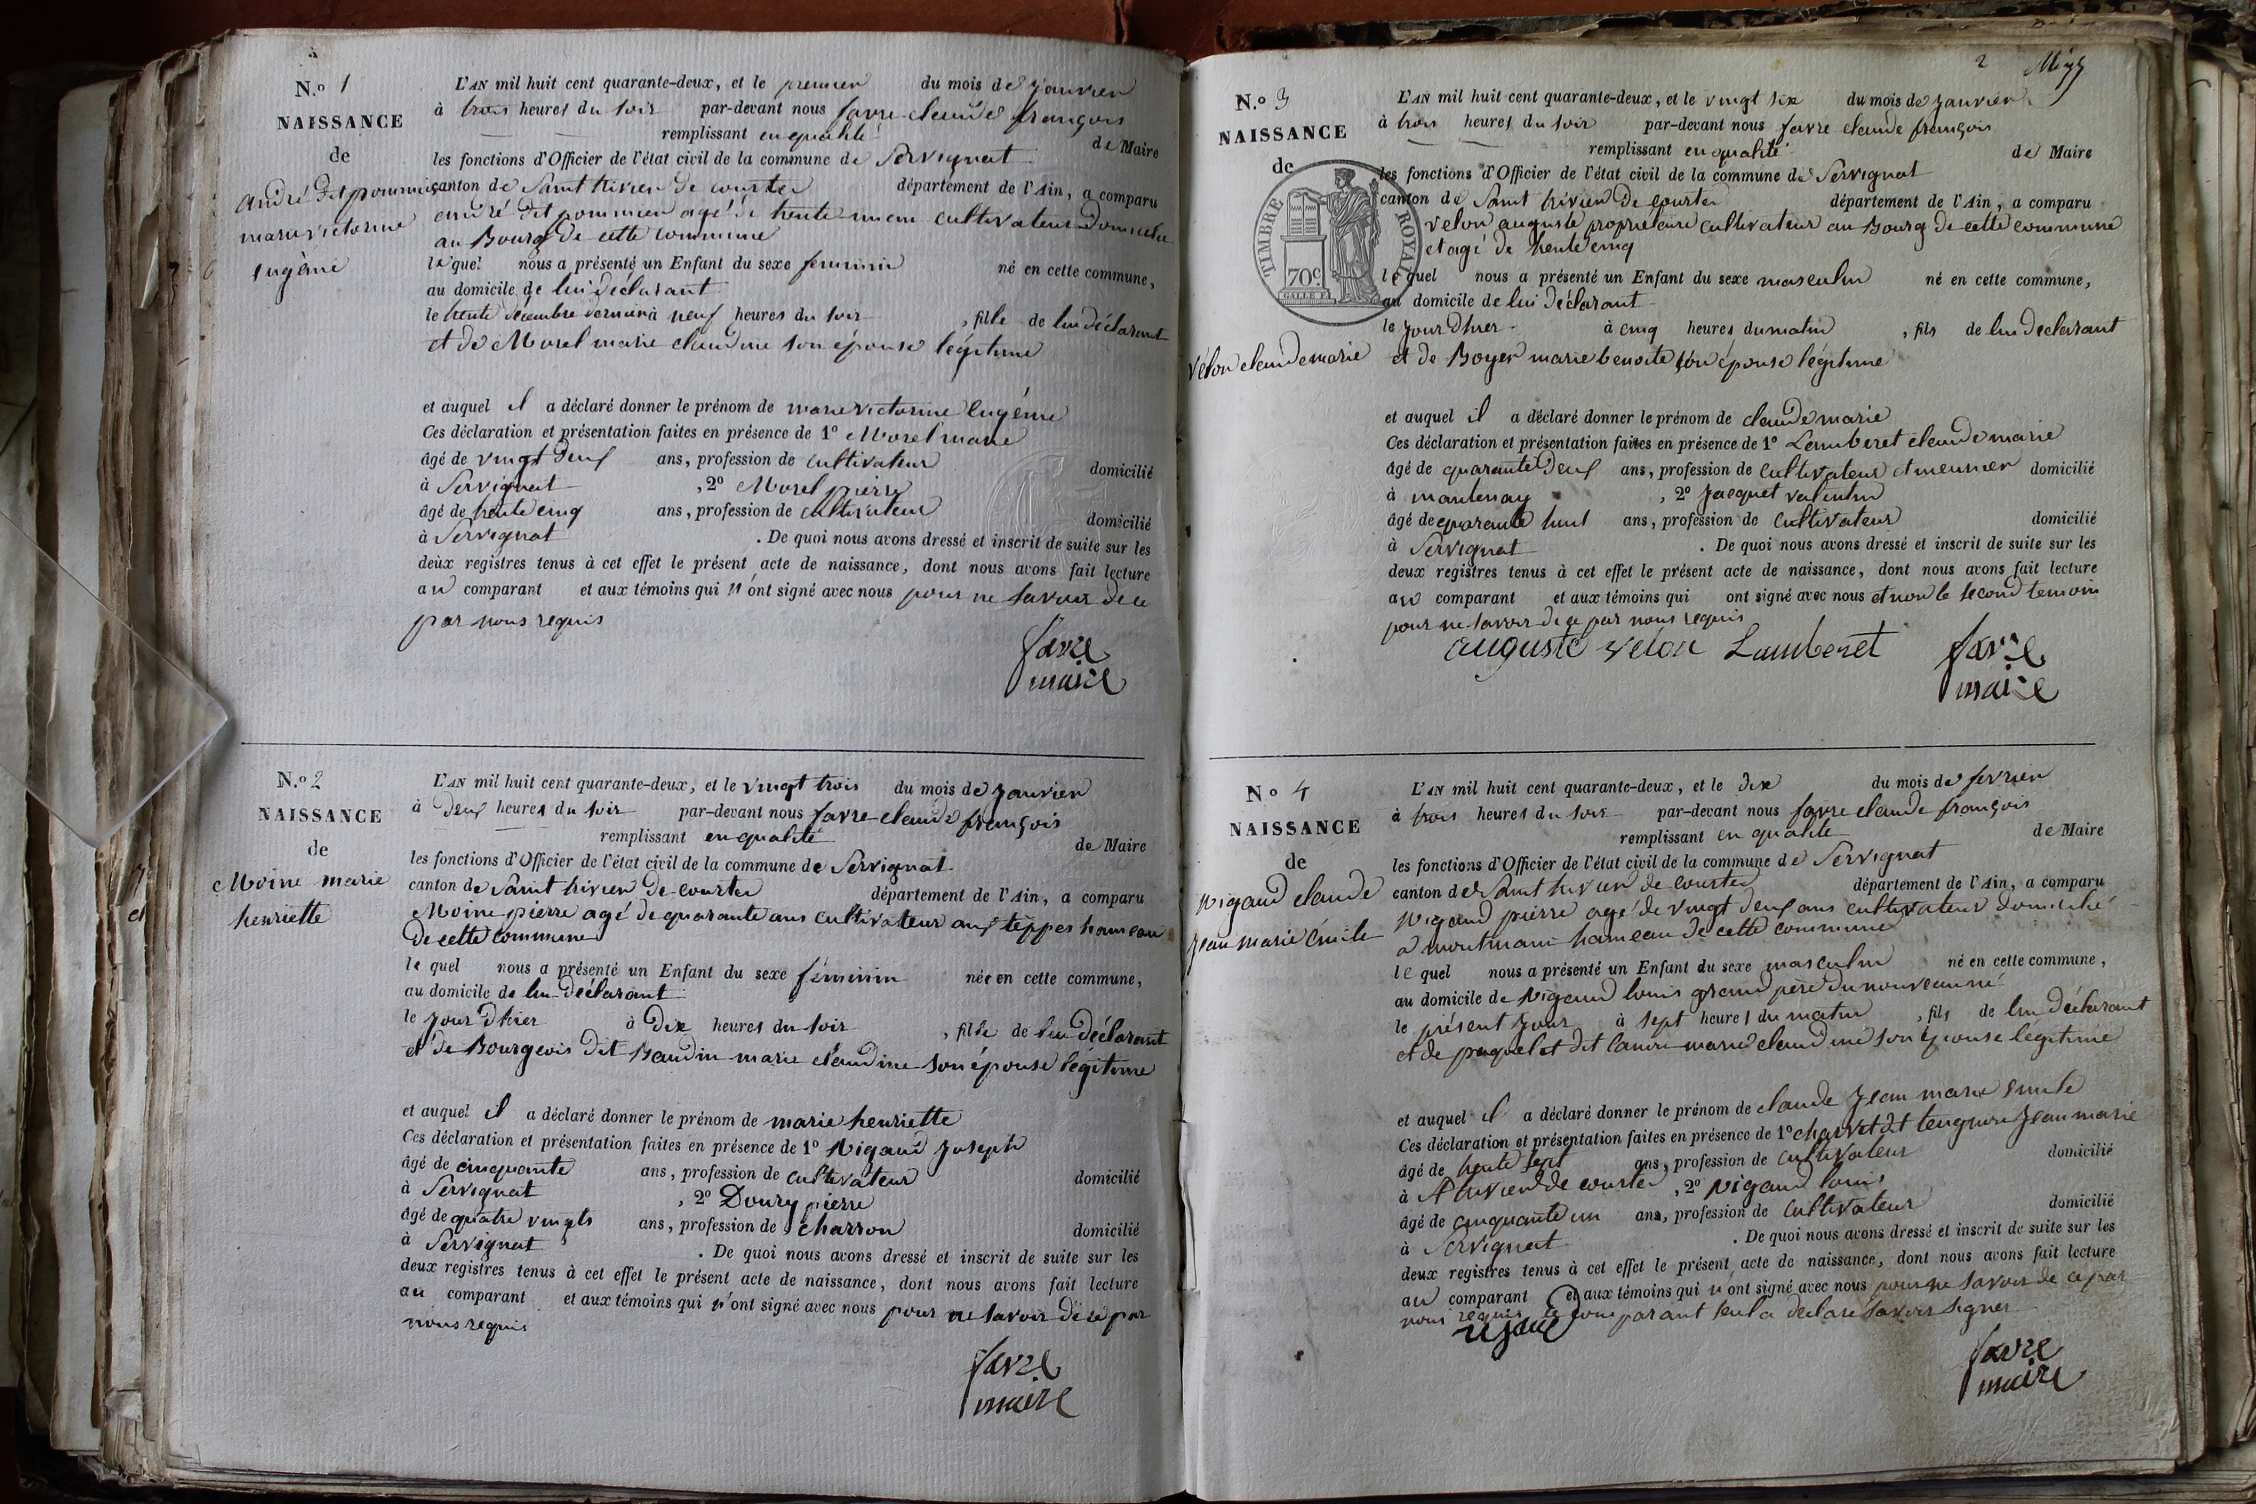 N.º 1
NAISSANCE
de
andré dit pommier
marie victorine
Eugénie
L'AN mil huit cent quarante-deux, et le premier du mois de janvier
à trois heures du soir par-devant nous favre claude françois
remplissant en qualité de Maire
les fonctions d'Officier de l'état civil de la commune de Servignat
canton de Saint trivier de courtes département de l'Ain, a comparu
andré dit pommier agé de trente un ans cultivateur Domicilié
au Bourg de cette commune
lequel nous a présenté un Enfant du sexe feminin né en cette commune,
au domicile de lui declarant
le trente décembre dernier à neuf heures du soir , fille de lui déclarant
et de Morel marie claudine son épouse légitime
et auquel il a déclaré donner le prénom de marie victorine Eugénie
Ces déclaration et présentation faites en présence de 1º Morel marie
âgé de vingt deux ans, profession de cultivateur domicilié
à Servignat , 2º Morel pierre
âgé de trente cinq ans, profession de cultivateur domicilié
à Servignat . De quoi nous avons dressé et inscrit de suite sur les
deux registres tenus à cet effet le présent acte de naissance, dont nous avons fait lecture
au comparant et aux témoins qui n'ont signé avec nous pour ne savoir de ce
par nous requis
favre
maire
N.º 2
NAISSANCE
de
Moine marie
henriette
L'AN mil huit cent quarante-deux, et le vingt trois du mois de janvier
à deux heures du soir par-devant nous favre claude françois
remplissant en qualité de Maire
les fonctions d'Officier de l'état civil de la commune de Servignat
canton de Saint trivier de courtes département de l'Ain, a comparu
Moine pierre agé de quarante ans cultivateur aux teppes hameau
de cette commune
lequel nous a présenté un Enfant du sexe féminin née en cette commune,
au domicile de lui déclarant
le jour d'hier à dix heures du soir , fille de lui déclarant
et de Bourgeois dit Baudin marie claudine son épouse légitime
et auquel il a déclaré donner le prénom de marie henriette
Ces déclaration et présentation faites en présence de 1º Nigaud Joseph
âgé de cinquante ans, profession de cultivateur domicilié
à Servignat , 2º Doury pierre
âgé de quatre vingts ans, profession de charron domicilié
à Servignat . De quoi nous avons dressé et inscrit de suite sur les
deux registres tenus à cet effet le présent acte de naissance, dont nous avons fait lecture
au comparant et aux témoins qui n'ont signé avec nous pour ne savoir de ce par
nous requis
favre
maire
2
N.º 3
NAISSANCE
de
TIMBRE ROYAL
70c
Vélon claude marie
L'AN mil huit cent quarante-deux, et le vingt six du mois de janvier
à trois heures du soir par-devant nous favre claude françois
remplissant en qualité de Maire
les fonctions d'Officier de l'état civil de la commune de Servignat
canton de Saint trivier de courtes département de l'Ain, a comparu
velon auguste propriétaire cultivateur au Bourg de cette commune
et agé de trente cinq
lequel nous a présenté un Enfant du sexe masculin né en cette commune,
au domicile de lui déclarant
le jour d'hier à cinq heures du matin , fils de lui declarant
et de Boyer marie benoite son épouse légitime
et auquel il a déclaré donner le prénom de claude marie
Ces déclaration et présentation faites en présence de 1º Lamberet claude marie
âgé de quarante deux ans, profession de cultivateur et meunier domicilié
à mantenay , 2º Jacquet valentin
âgé de quarante huit ans, profession de cultivateur domicilié
à Servignat . De quoi nous avons dressé et inscrit de suite sur les
deux registres tenus à cet effet le présent acte de naissance, dont nous avons fait lecture
au comparant et aux témoins qui ont signé avec nous et non le second temoin
pour ne savoir de ce par nous requis
auguste velon Lamberet favre
maire
Nº 4
NAISSANCE
de
Nigaud claude
jean marie émile
L'AN mil huit cent quarante-deux, et le dix du mois de fevrier
à trois heures du soir par-devant nous favre claude françois
remplissant en qualité de Maire
les fonctions d'Officier de l'état civil de la commune de Servignat
canton de Saint trivier de courtes département de l'Ain, a comparu
Nigaud pierre agé de vingt deux ans cultivateur domicilié
a hameau de cette commune
lequel nous a présenté un Enfant du sexe masculin né en cette commune,
au domicile de Nigaud louis grand père du nouveau né
le présent jour à sept heures du matin , fils de lui déclarant
et de dit marie claudine son épouse legitime
et auquel il a déclaré donner le prénom de claude jean marie emile
Ces déclaration et présentation faites en présence de 1º dit jean marie
âgé de trente sept ans, profession de cultivateur domicilié
à St trivier de courtes , 2º Nigaud louis
âgé de cinquante un ans, profession de cultivateur domicilié
à Servignat . De quoi nous avons dressé et inscrit de suite sur les
deux registres tenus à cet effet le présent acte de naissance, dont nous avons fait lecture
au comparant et aux témoins qui n'ont signé avec nous pour ne savoir de ce par
nous requis le comparant seul a declaré savoir signer
favre
maire